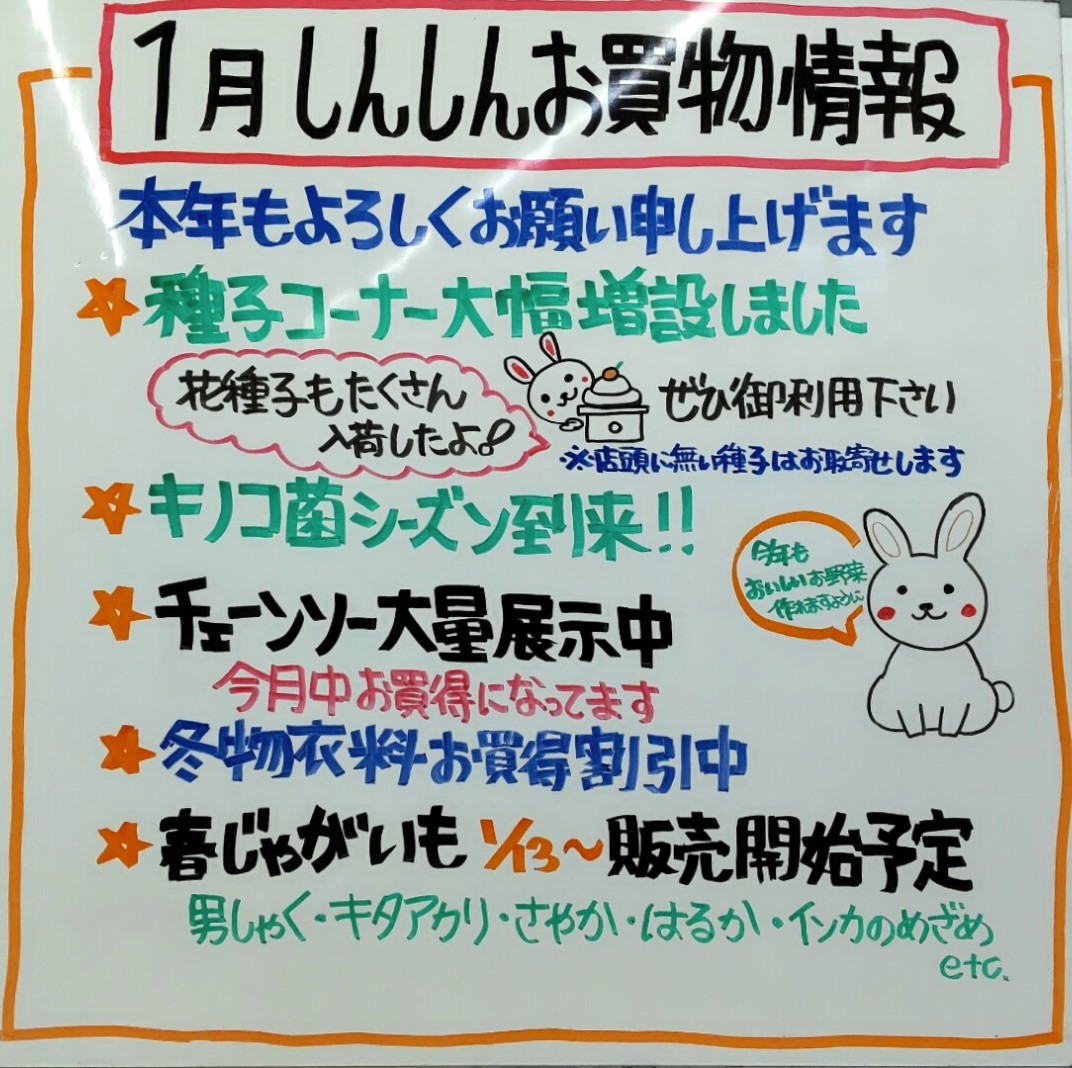 1月しんしんお買物情報
本年もよろしくお願い申し上げます
種子コーナー大幅増設しました
花種子もたくさん
入荷したよ!
ぜひ御利用下さい
※店頭に無い種子はお取寄せします
キノコ菌シーズン到来!!
今年も
おいしいお野菜
作れますように
チェーンソー大量展示中
今月中お買得になってます
冬物衣料お買得割引中
春じゃがいも 1/13〜販売開始予定
男しゃく・キタアカリ・さやか・はるか・インカのめざめ
etc.